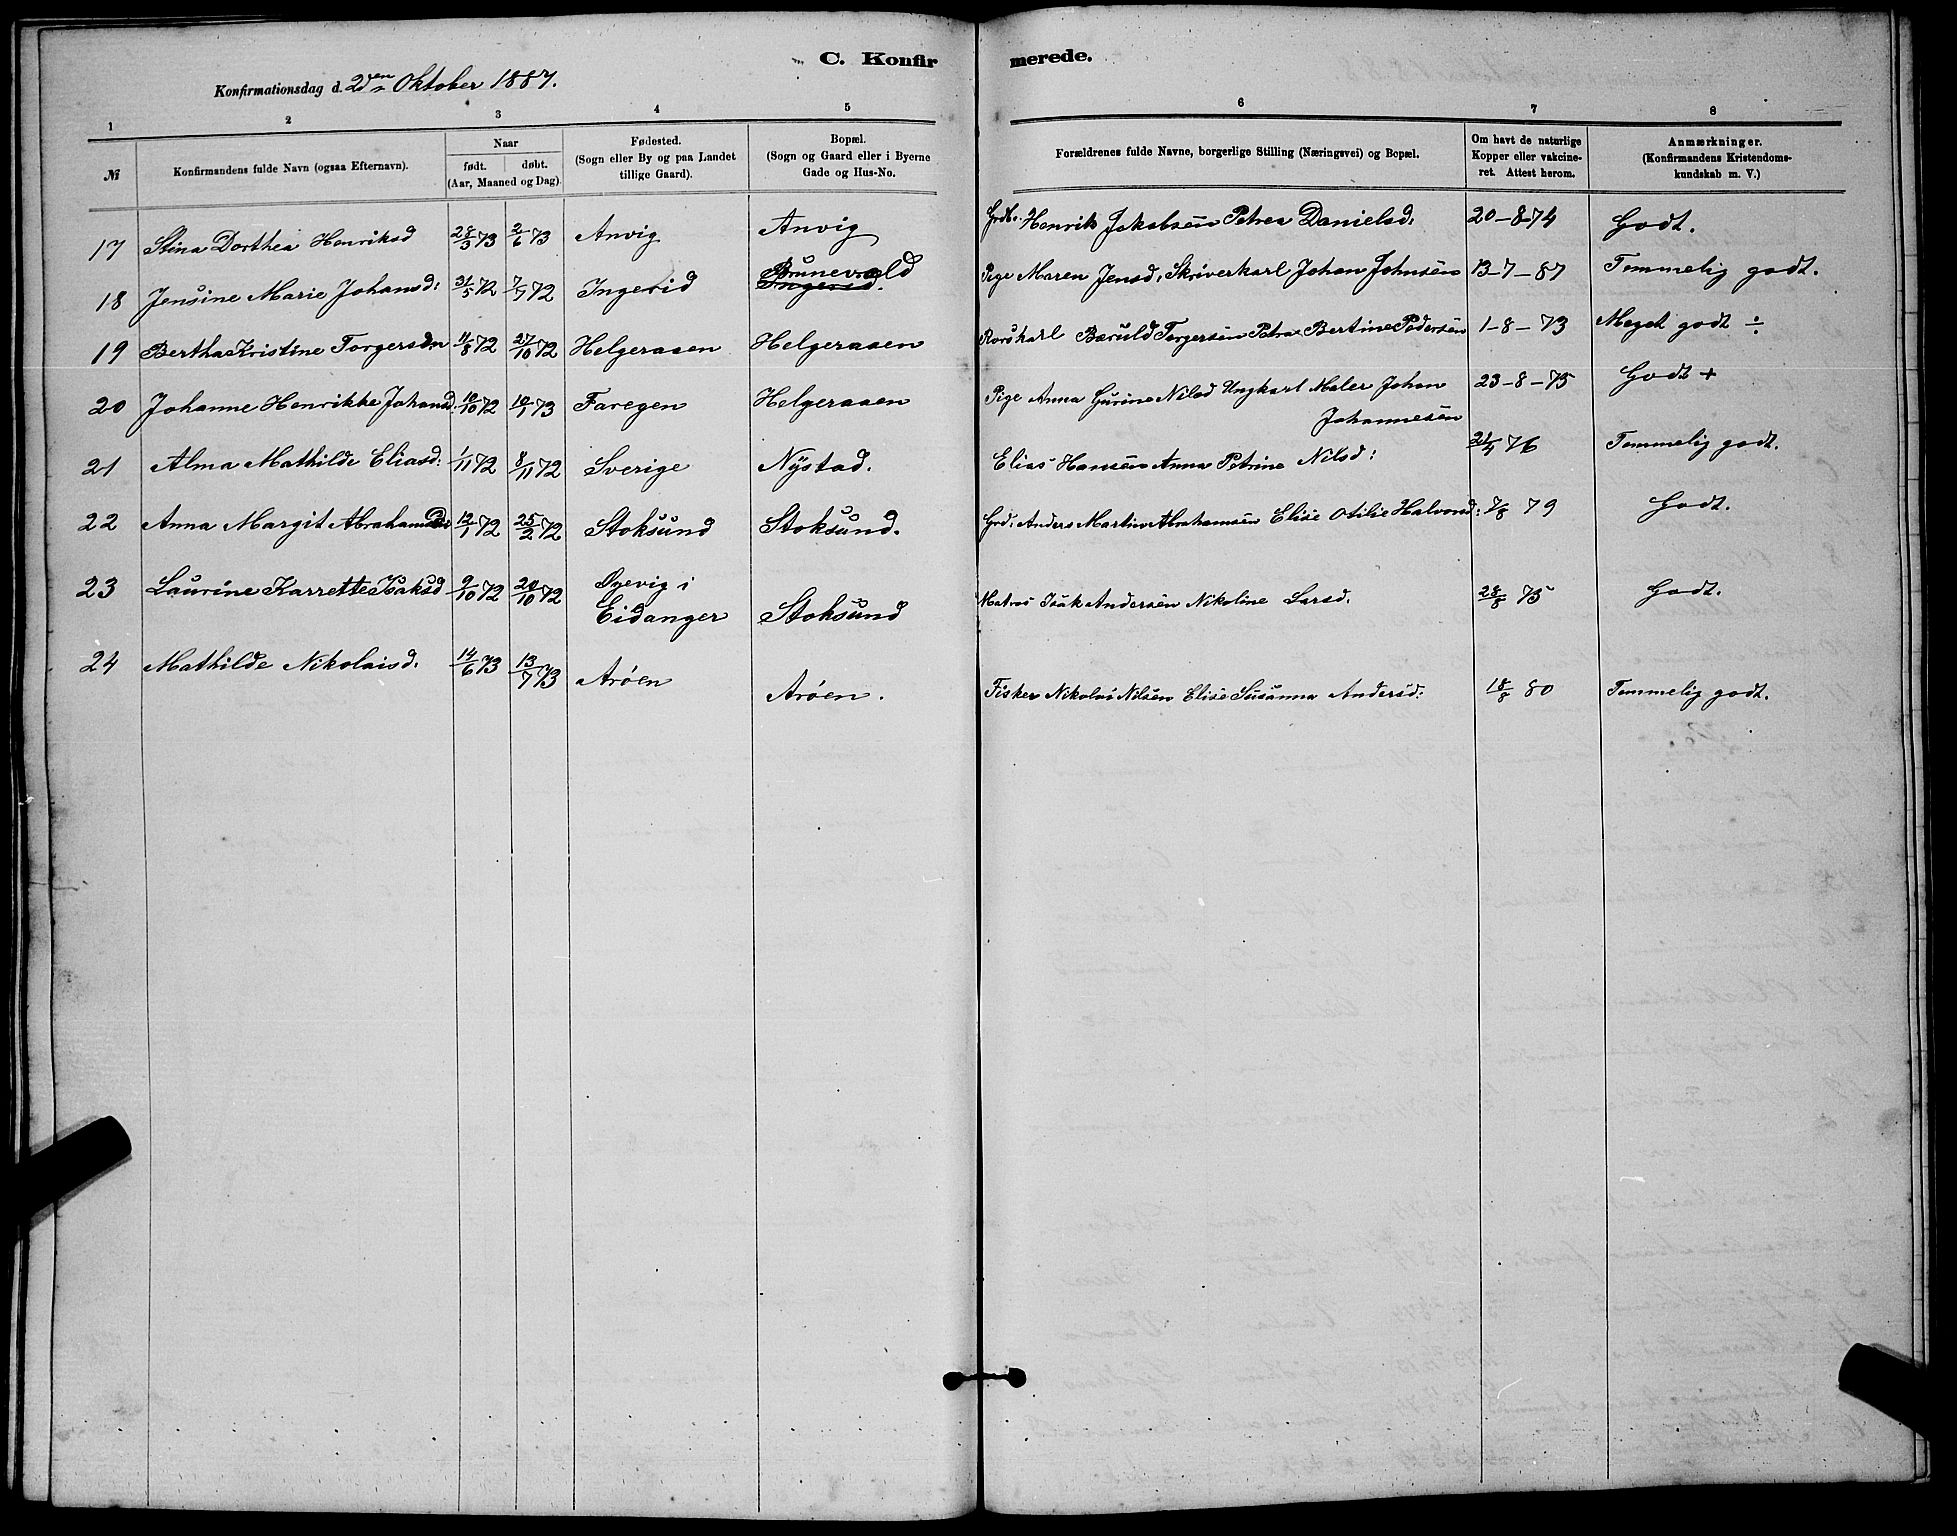 C. Konfir merede.
Konfirmationsdag d. 2den Oktober 1887.
1 2 3 4 5 6 7 8
№ Konfirmandens fulde Navn (ogsaa Efternavn). Naar født. døbt. (Aar, Maaned og Dag). Fødested. (Sogn eller By og paa Landet tillige Gaard). Bopæl. (Sogn og Gaard eller i Byerne Gade og Hus-No. Forældrenes fulde Navne, borgerlige Stilling (Næringsvei) og Bopæl. Om havt de naturlige Kopper eller vakcineret. Attest herom. Anmærkninger. (Konfirmandens Kristendomskundskab m. V.)
17 Stina Dorthea Henriksd 28/3 73 2/6 73 Anvig Anvig Grdb. Henrik Jakobsen Petrea Danielsd: 20-8-74 Godt.
18 Jensine Marie Johansd: 31/5 72 7/7 72 Ingerid Brunevald Ingerid. Pige Maren Jensd, Skriverkarl Johan Johnsen 13-7-87 Temmelig godt.
19 Bertha Kristine Torgersdn 11/8 72 27/10 72 Helgeraaen Helgeraaen Rorskarl Bæruld Torgersen Petra Bertine Pedersen 1-8-73 Meget godt ÷
20 Johanne Henrikke Johansd. 10/10 72 10/1 73 Faregen Helgeraaen Pige Anna Gurine Nilsd Ungkarl Maler Johan 23-8-75 Godt +
Johannesen
21 Alma Mathilde Eliasd: 1/11 72 8/11 72 Sverige Nystad. Elias Hansen Anna Petrine Nilsd: 21/4 76 Temmelig godt.
22 Anna Margit Abrahamsd: 12/1 72 25/2 72 Stoksund Stoksund. Grd: Anders Martin Abrahamsen Elise Otilie Halvorsd: 7/8 79 Godt.
23 Laurine Karrette Isaksd 9/10 72 20/10 72 Øyevig i
Eidanger Stoksund Matros Isak Andersen Nikoline Larsd. 28/8 75 Godt.
24 Mathilde Nikolaisd. 14/6 73 13/7 73 Arøen Arøen. Fisker Nikolai Nilsen Elise Susanna Andersd: 18/8 80 Temmelig godt.